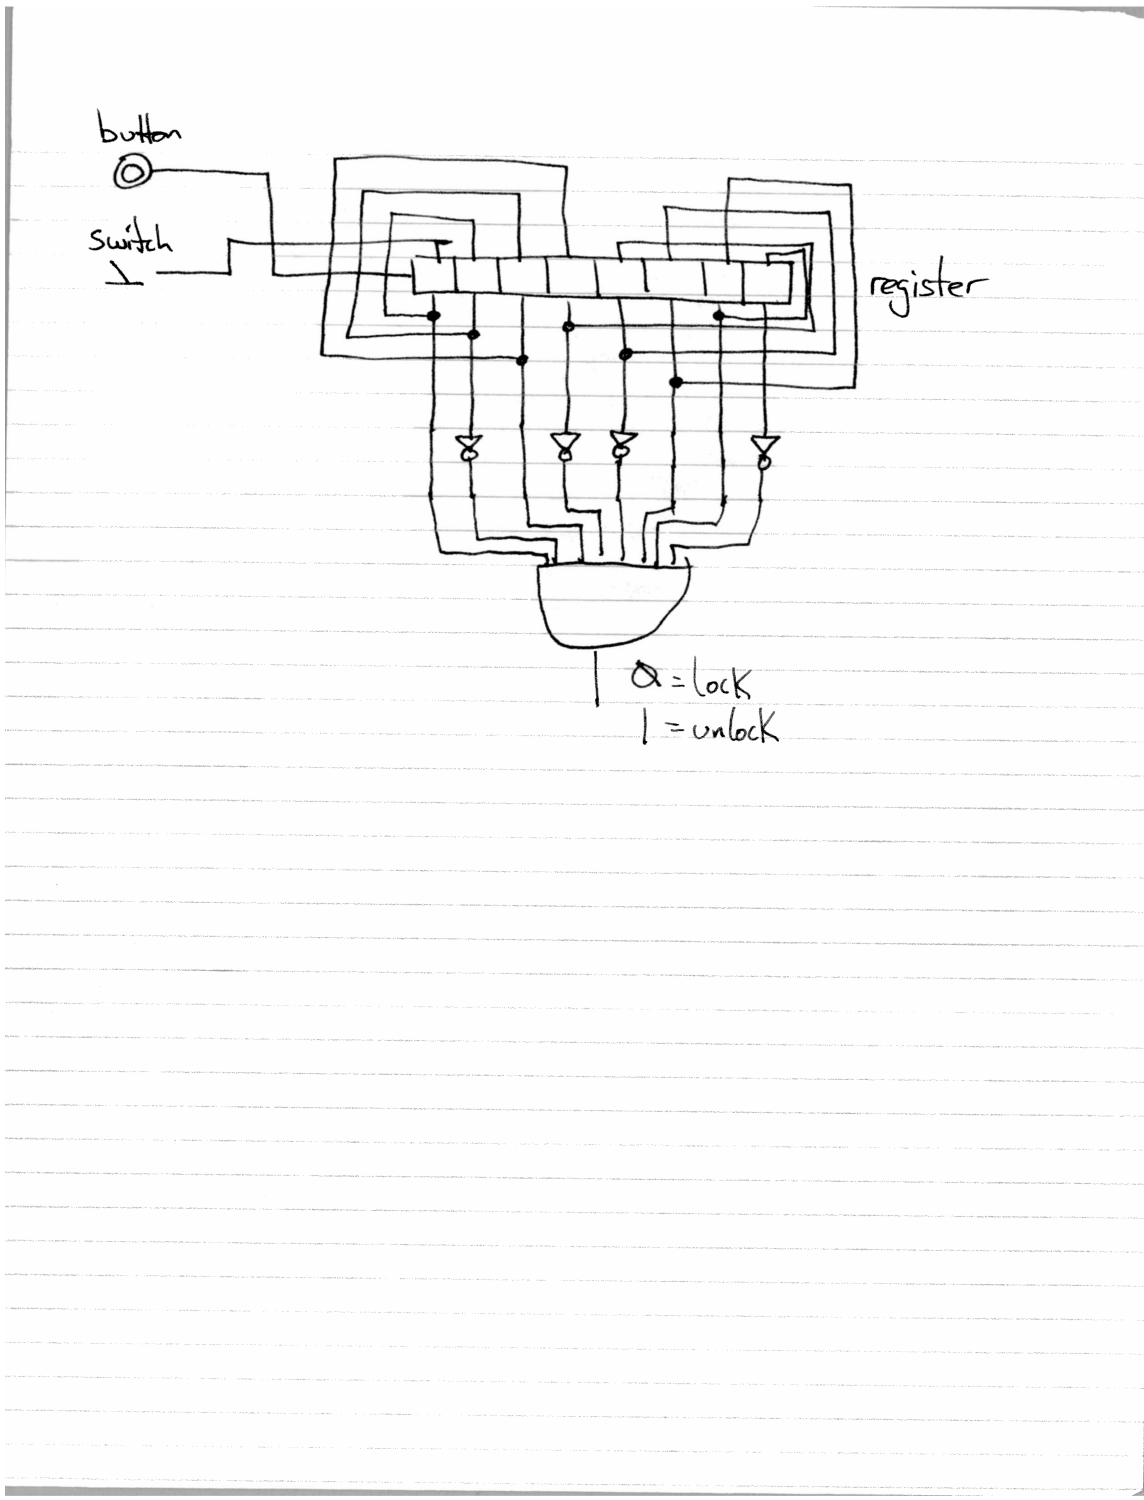 button
switch
register
0 = lock
1 = unlock